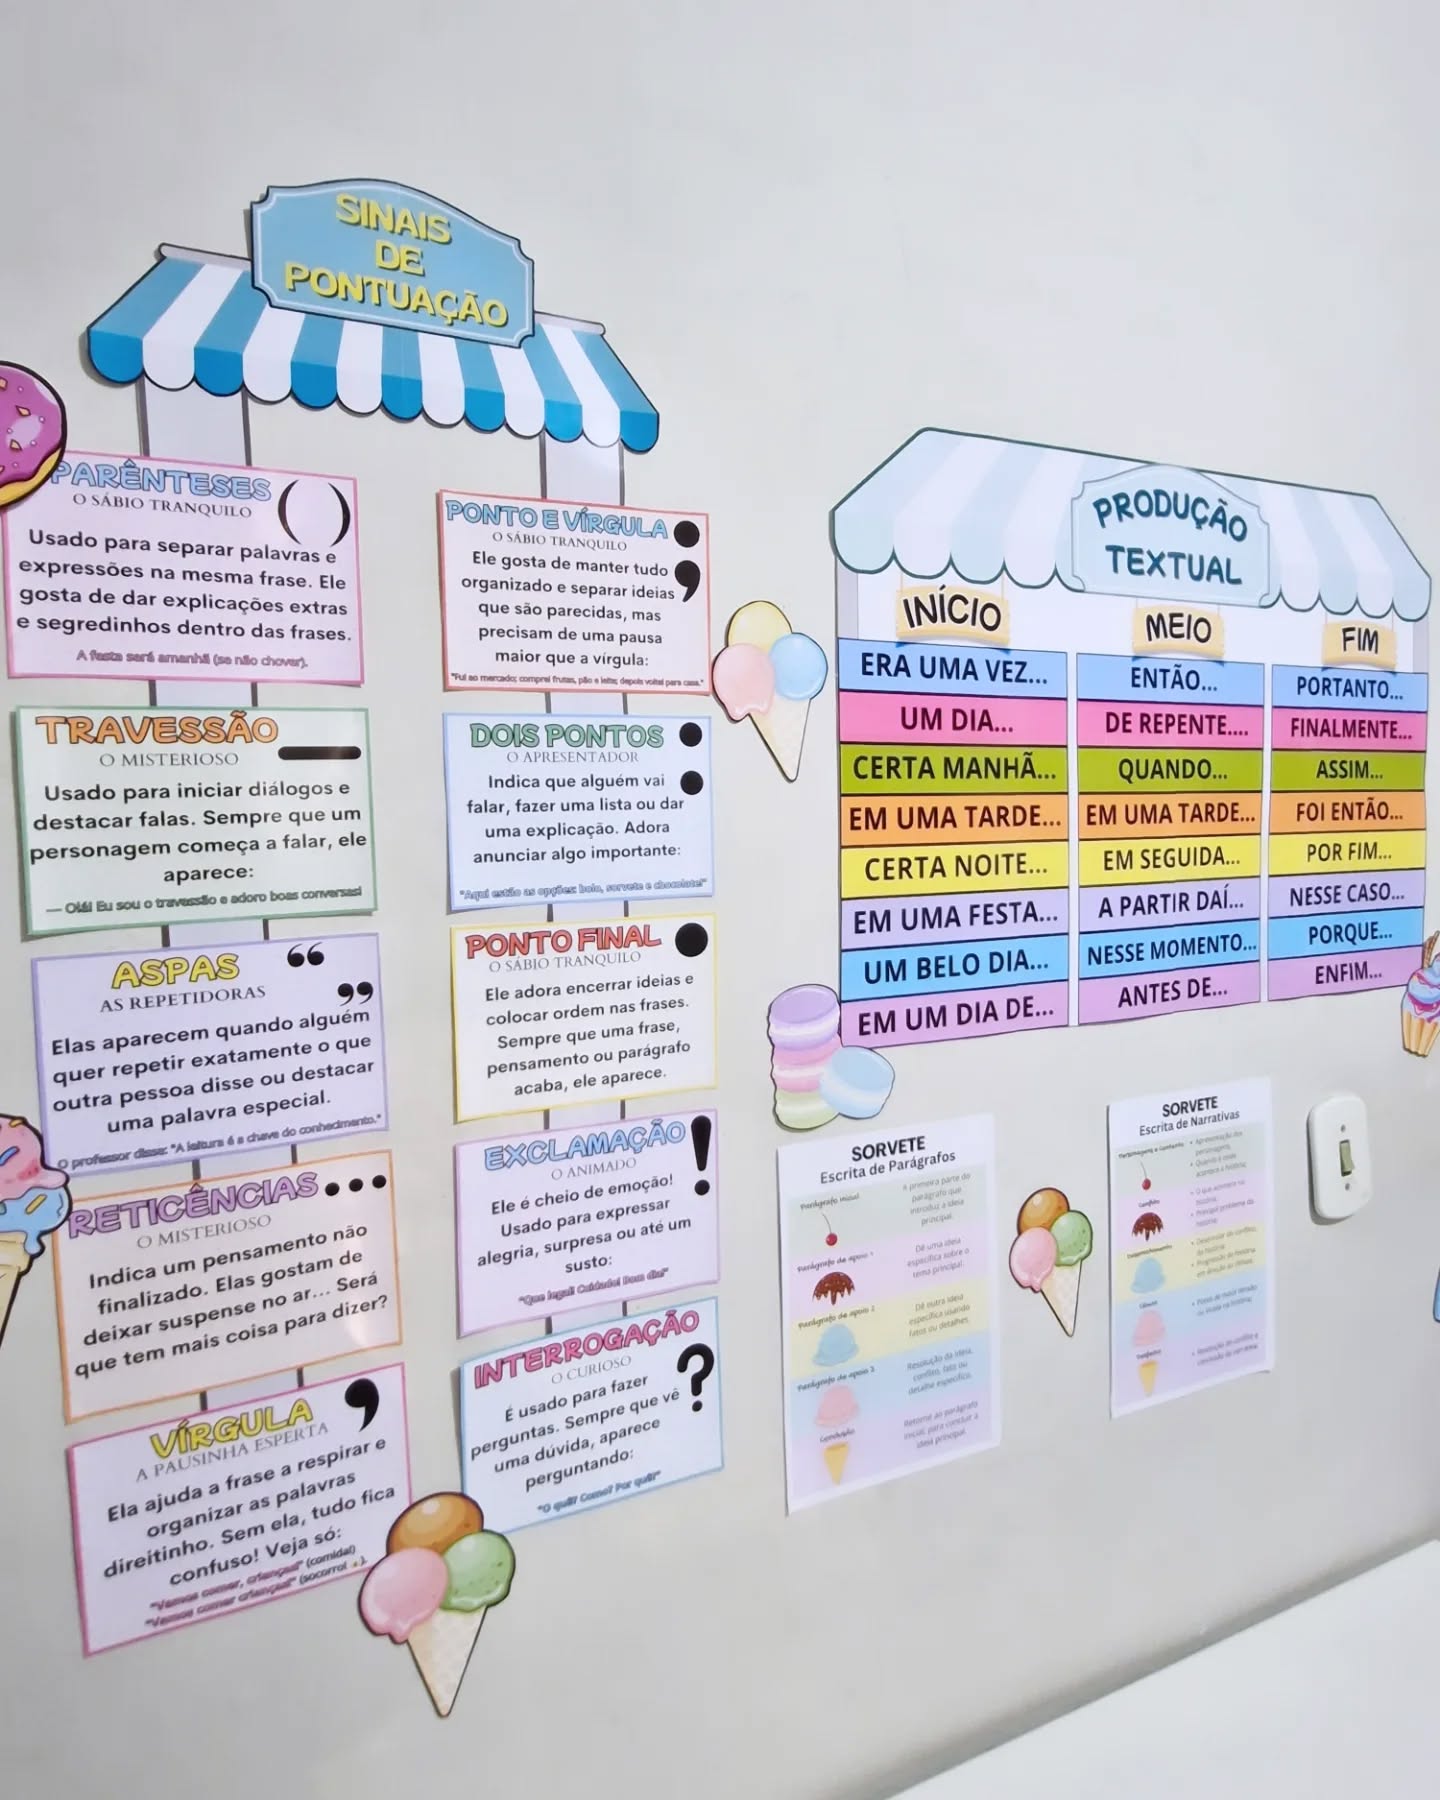 SINAIS
DE
PONTUAÇÃO
PARÊNTESES
O SÁBIO TRANQUILO
Usado para separar palavras e
expressões na mesma frase. Ele
gosta de dar explicações extras
e segredinhos dentro das frases.
A festa será amanhã (se não chover).
TRAVESSÃO
O MISTERIOSO
Usado para iniciar diálogos e
destacar falas. Sempre que um
personagem começa a falar, ele
aparece:
— Olá! Eu sou o travessão e adoro boas conversas!
ASPAS
AS REPETIDORAS
Elas aparecem quando alguém
quer repetir exatamente o que
outra pessoa disse ou destacar
uma palavra especial.
O professor disse: "A leitura é a chave do conhecimento."
RETICÊNCIAS
O MISTERIOSO
Indica um pensamento não
finalizado. Elas gostam de
deixar suspense no ar... Será
que tem mais coisa para dizer?
VÍRGULA
A PAUSINHA ESPERTA
Ela ajuda a frase a respirar e
organizar as palavras
direitinho. Sem ela, tudo fica
confuso! Veja só:
"Vamos comer, crianças!" (comida!)
"Vamos comer crianças!" (socorro!
PONTO E VÍRGULA
O SÁBIO TRANQUILO
Ele gosta de manter tudo
organizado e separar ideias
que são parecidas, mas
precisam de uma pausa
maior que a vírgula:
"Fui ao mercado; comprei frutas, pão e leite; depois voltei para casa."
DOIS PONTOS
O APRESENTADOR
Indica que alguém vai
falar, fazer uma lista ou dar
uma explicação. Adora
anunciar algo importante:
"Aqui estão as opções: bolo, sorvete e chocolate!"
PONTO FINAL
O SÁBIO TRANQUILO
Ele adora encerrar ideias e
colocar ordem nas frases.
Sempre que uma frase,
pensamento ou parágrafo
acaba, ele aparece.
EXCLAMAÇÃO
O ANIMADO
Ele é cheio de emoção!
Usado para expressar
alegria, surpresa ou até um
susto:
"Que legal! Cuidado! Bom dia!"
INTERROGAÇÃO
O CURIOSO
É usado para fazer
perguntas. Sempre que vê
uma dúvida, aparece
perguntando:
"O quê? Como? Por quê?"
PRODUÇÃO
TEXTUAL
INÍCIO
ERA UMA VEZ...
UM DIA...
CERTA MANHÃ...
EM UMA TARDE...
CERTA NOITE...
EM UMA FESTA...
UM BELO DIA...
EM UM DIA DE...
MEIO
ENTÃO...
DE REPENTE....
QUANDO...
EM UMA TARDE...
EM SEGUIDA...
A PARTIR DAÍ...
NESSE MOMENTO...
ANTES DE...
FIM
PORTANTO...
FINALMENTE...
ASSIM...
FOI ENTÃO...
POR FIM...
NESSE CASO...
PORQUE...
ENFIM...
SORVETE
Escrita de Parágrafos
Parágrafo inicial
A primeira parte do
parágrafo que
introduz a ideia
principal.
Parágrafo de apoio 1
Dê uma ideia
específica sobre o
tema principal.
Parágrafo de apoio 2
Dê outra ideia
específica usando
fatos ou detalhes.
Parágrafo de apoio 3
Resolução da ideia,
conflito, fato ou
detalhe específico.
Conclusão
Retorne ao parágrafo
inicial para concluir a
ideia principal.
SORVETE
Escrita de Narrativas
Personagens e Contexto
• Apresentação dos
personagens;
• Quando e onde
acontece a história;
Conflito
• O que acontece na
história;
• Principal problema da
história;
Desenvolvimento